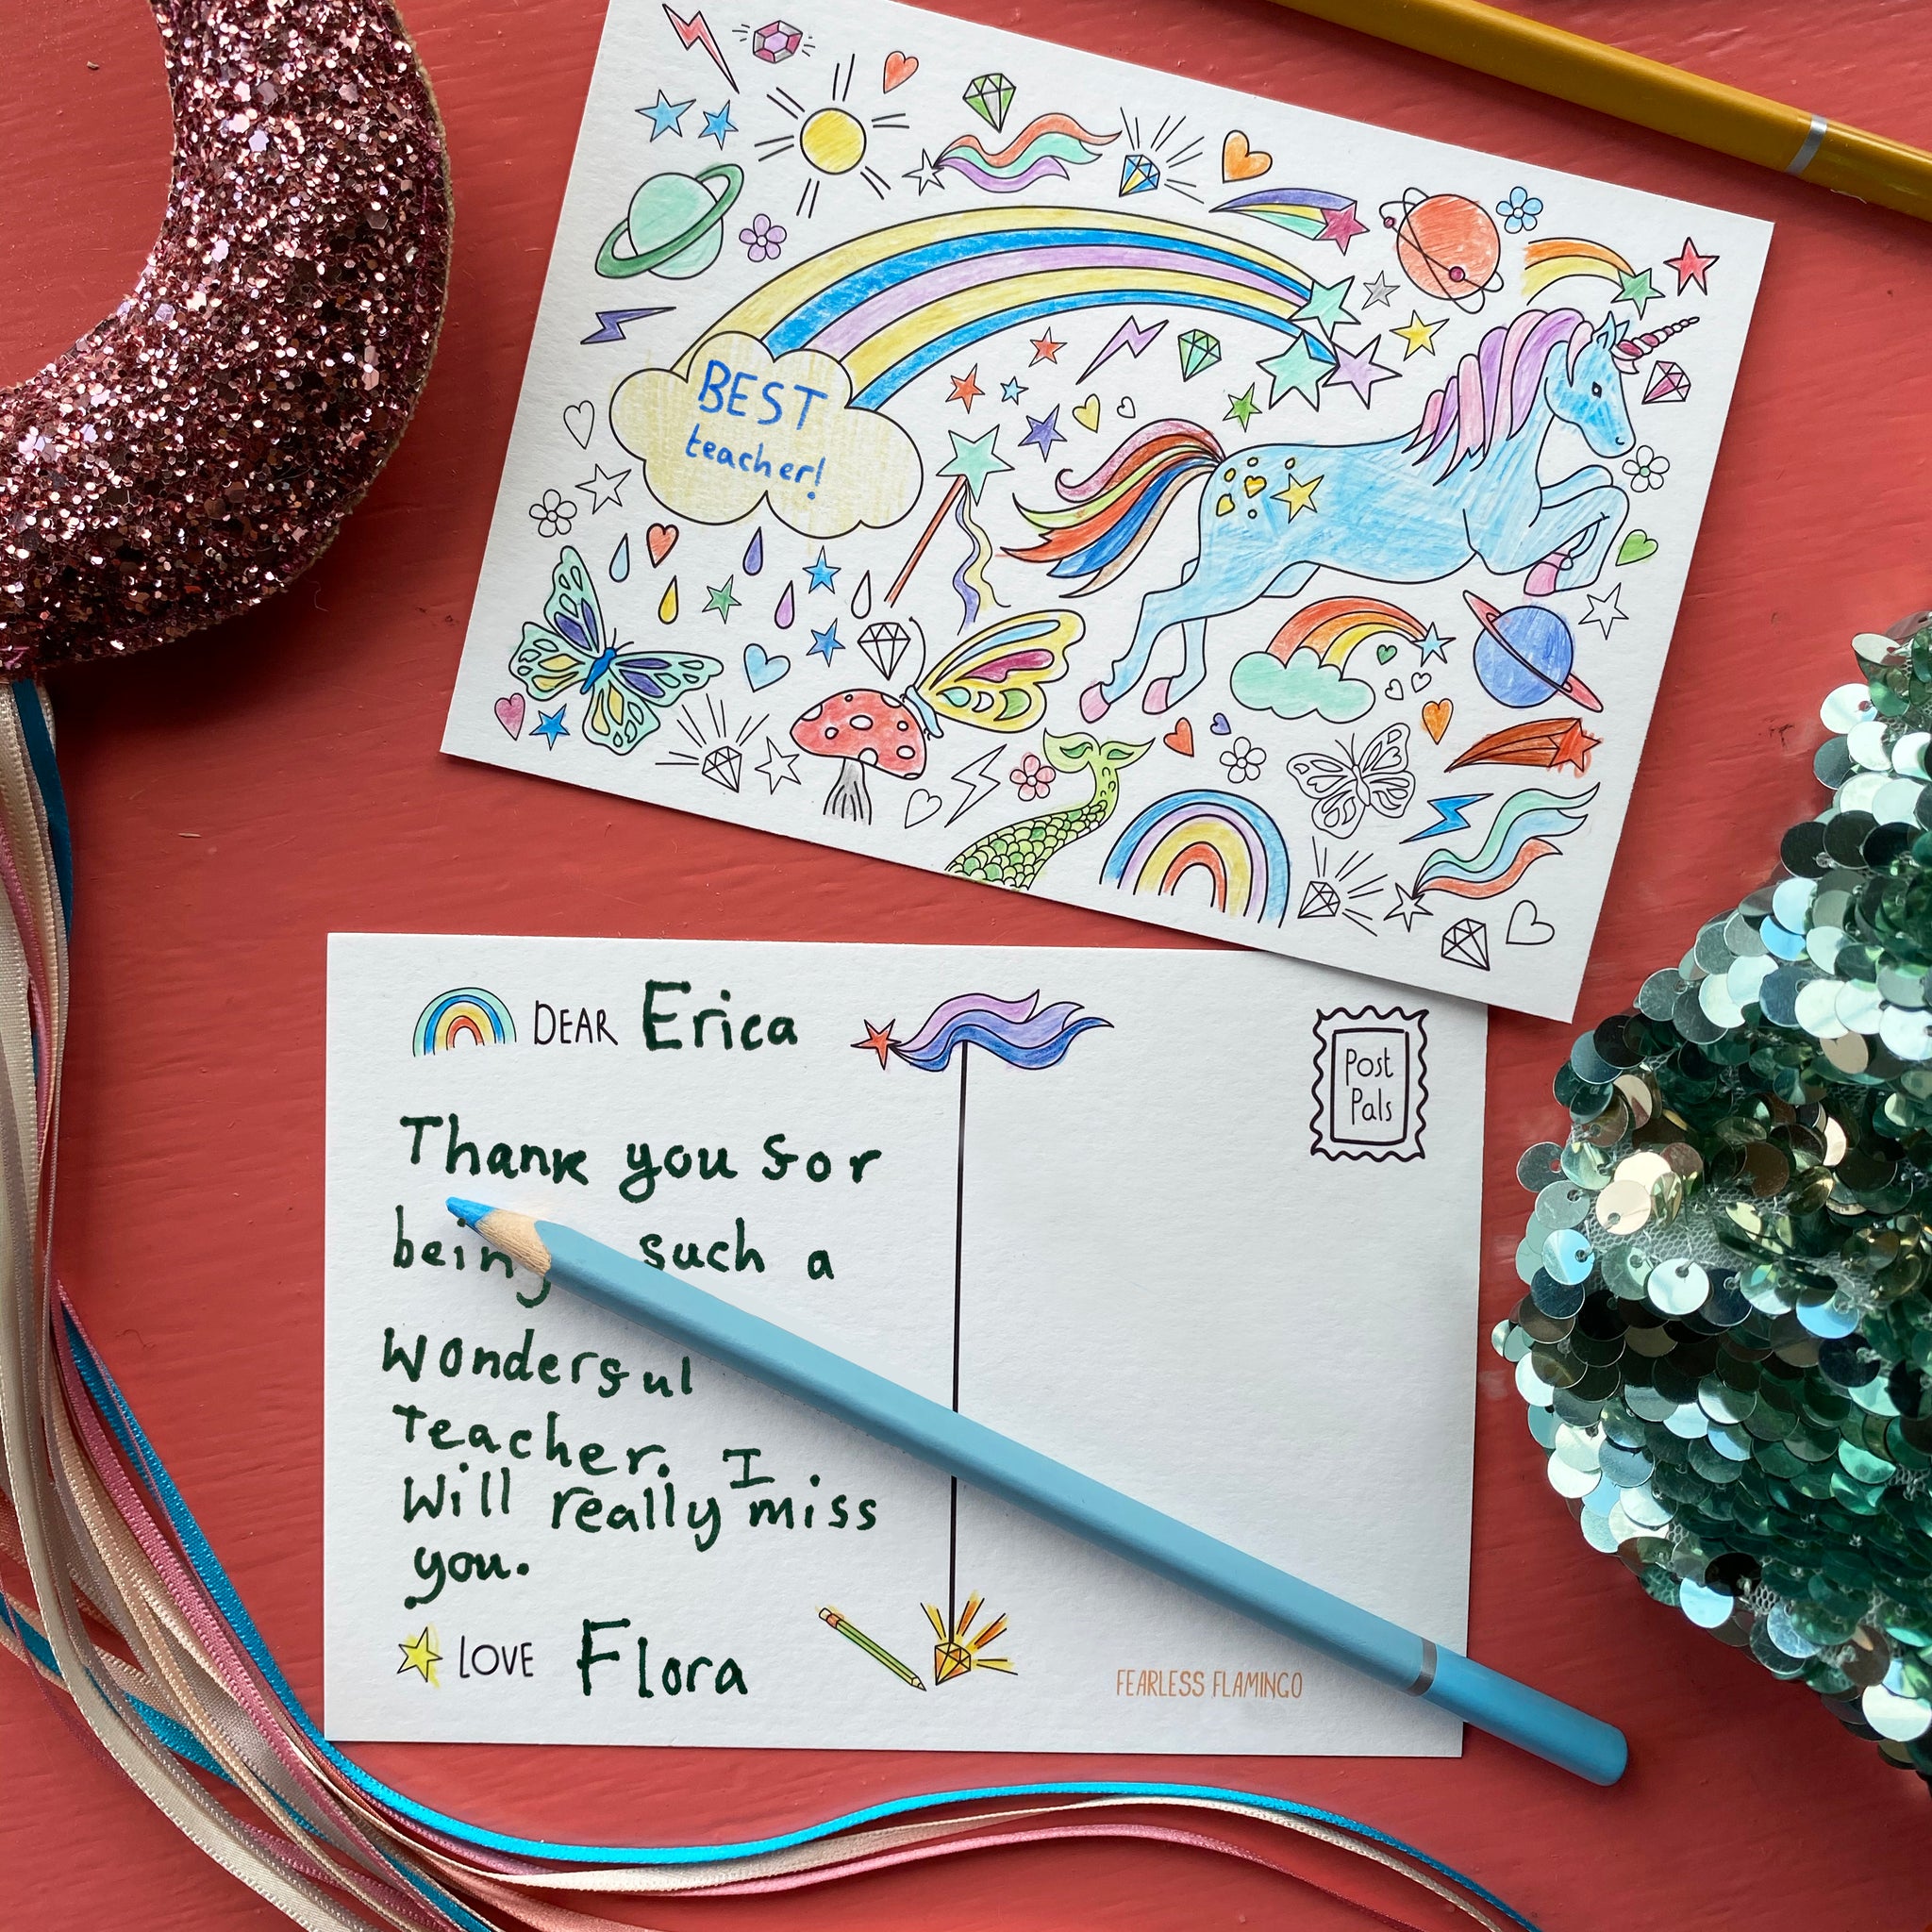 BEST
teacher!
DEAR Erica
Thank you for
being such a
wonderful
teacher. I
will really miss
you.
LOVE Flora
Post
Pals
FEARLESS FLAMINGO